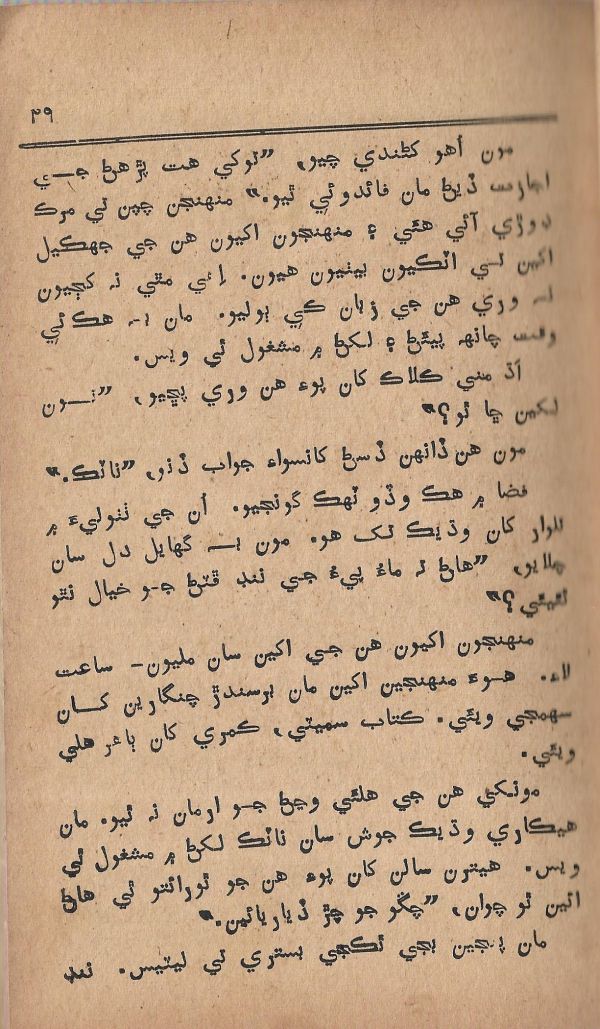 ۴۹
مون اُهو کڻندي چيو، ”توکي هت پڙهڻ جي
اجازت ڏيڻ مان فائدو ئي ٿيو.“ منهنجن چپن تي مرڪ
ڊوڙي آئي هئي ۽ منهنجون اکيون هن جي جهڪيل
اکين تي اٽڪيون بيٺيون هيون. اِهي مٿي نه کڄيون
نه وري هن جي زبان ڪي ٻوليو. مان به هڪ ئي
وقت چانهه پيئڻ ۽ لکڻ ۾ مشغول ٿي ويس.
اڌ مني ڪلاڪ کان پوءِ هن وري پڇيو، ”تون
لکين ڇا ٿو؟“
مون هن ڏانهن ڏسڻ کانسواءِ جواب ڏنو، ”ناٽڪ.“
فضا ۾ هڪ وڏو ٽهڪ گونجيو. اُن جي ٺٺوليءَ ۾
تلوار کان وڌيڪ تک هو. مون به گهايل دل سان
چلايو، ”هاڻ ته ماءُ پيءُ جي ننڊ ڦٽڻ جو خيال نٿو
ٿيئي؟“
منهنجون اکيون هن جي اکين سان مليون- ساعت
لاءِ. هوءَ منهنجين اکين مان برسندڙ چنگارين کان
سهمجي ويئي. ڪتاب سميٽي، ڪمري کان ٻاهر هلي
ويئي.
مونکي هن جي هلئي وڃڻ جو ارمان نه ٿيو. مان
هيڪاري وڌيڪ جوش سان ناٽڪ لکڻ ۾ مشغول ٿي
ويس. هيترن سالن کان پوءِ هن جو ٿورائتو ٿي هاڻ
ائين ٿو چوان، ”چڱو جو چڙ ڏياريائين.“
مان پنجين بجي ٿڪجي بستري تي ليٽيس. ننڊ